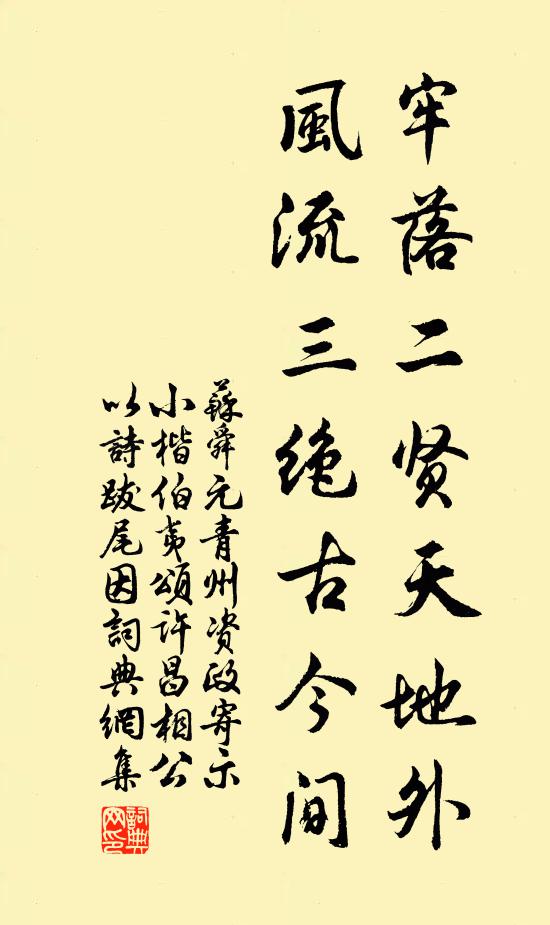 牢落二贤天地外
風流三绝古今间
蘇舜元青州资政寄示
小楷伯夷頌许昌相公
以詩跋尾因詞典網集
詞典
网印